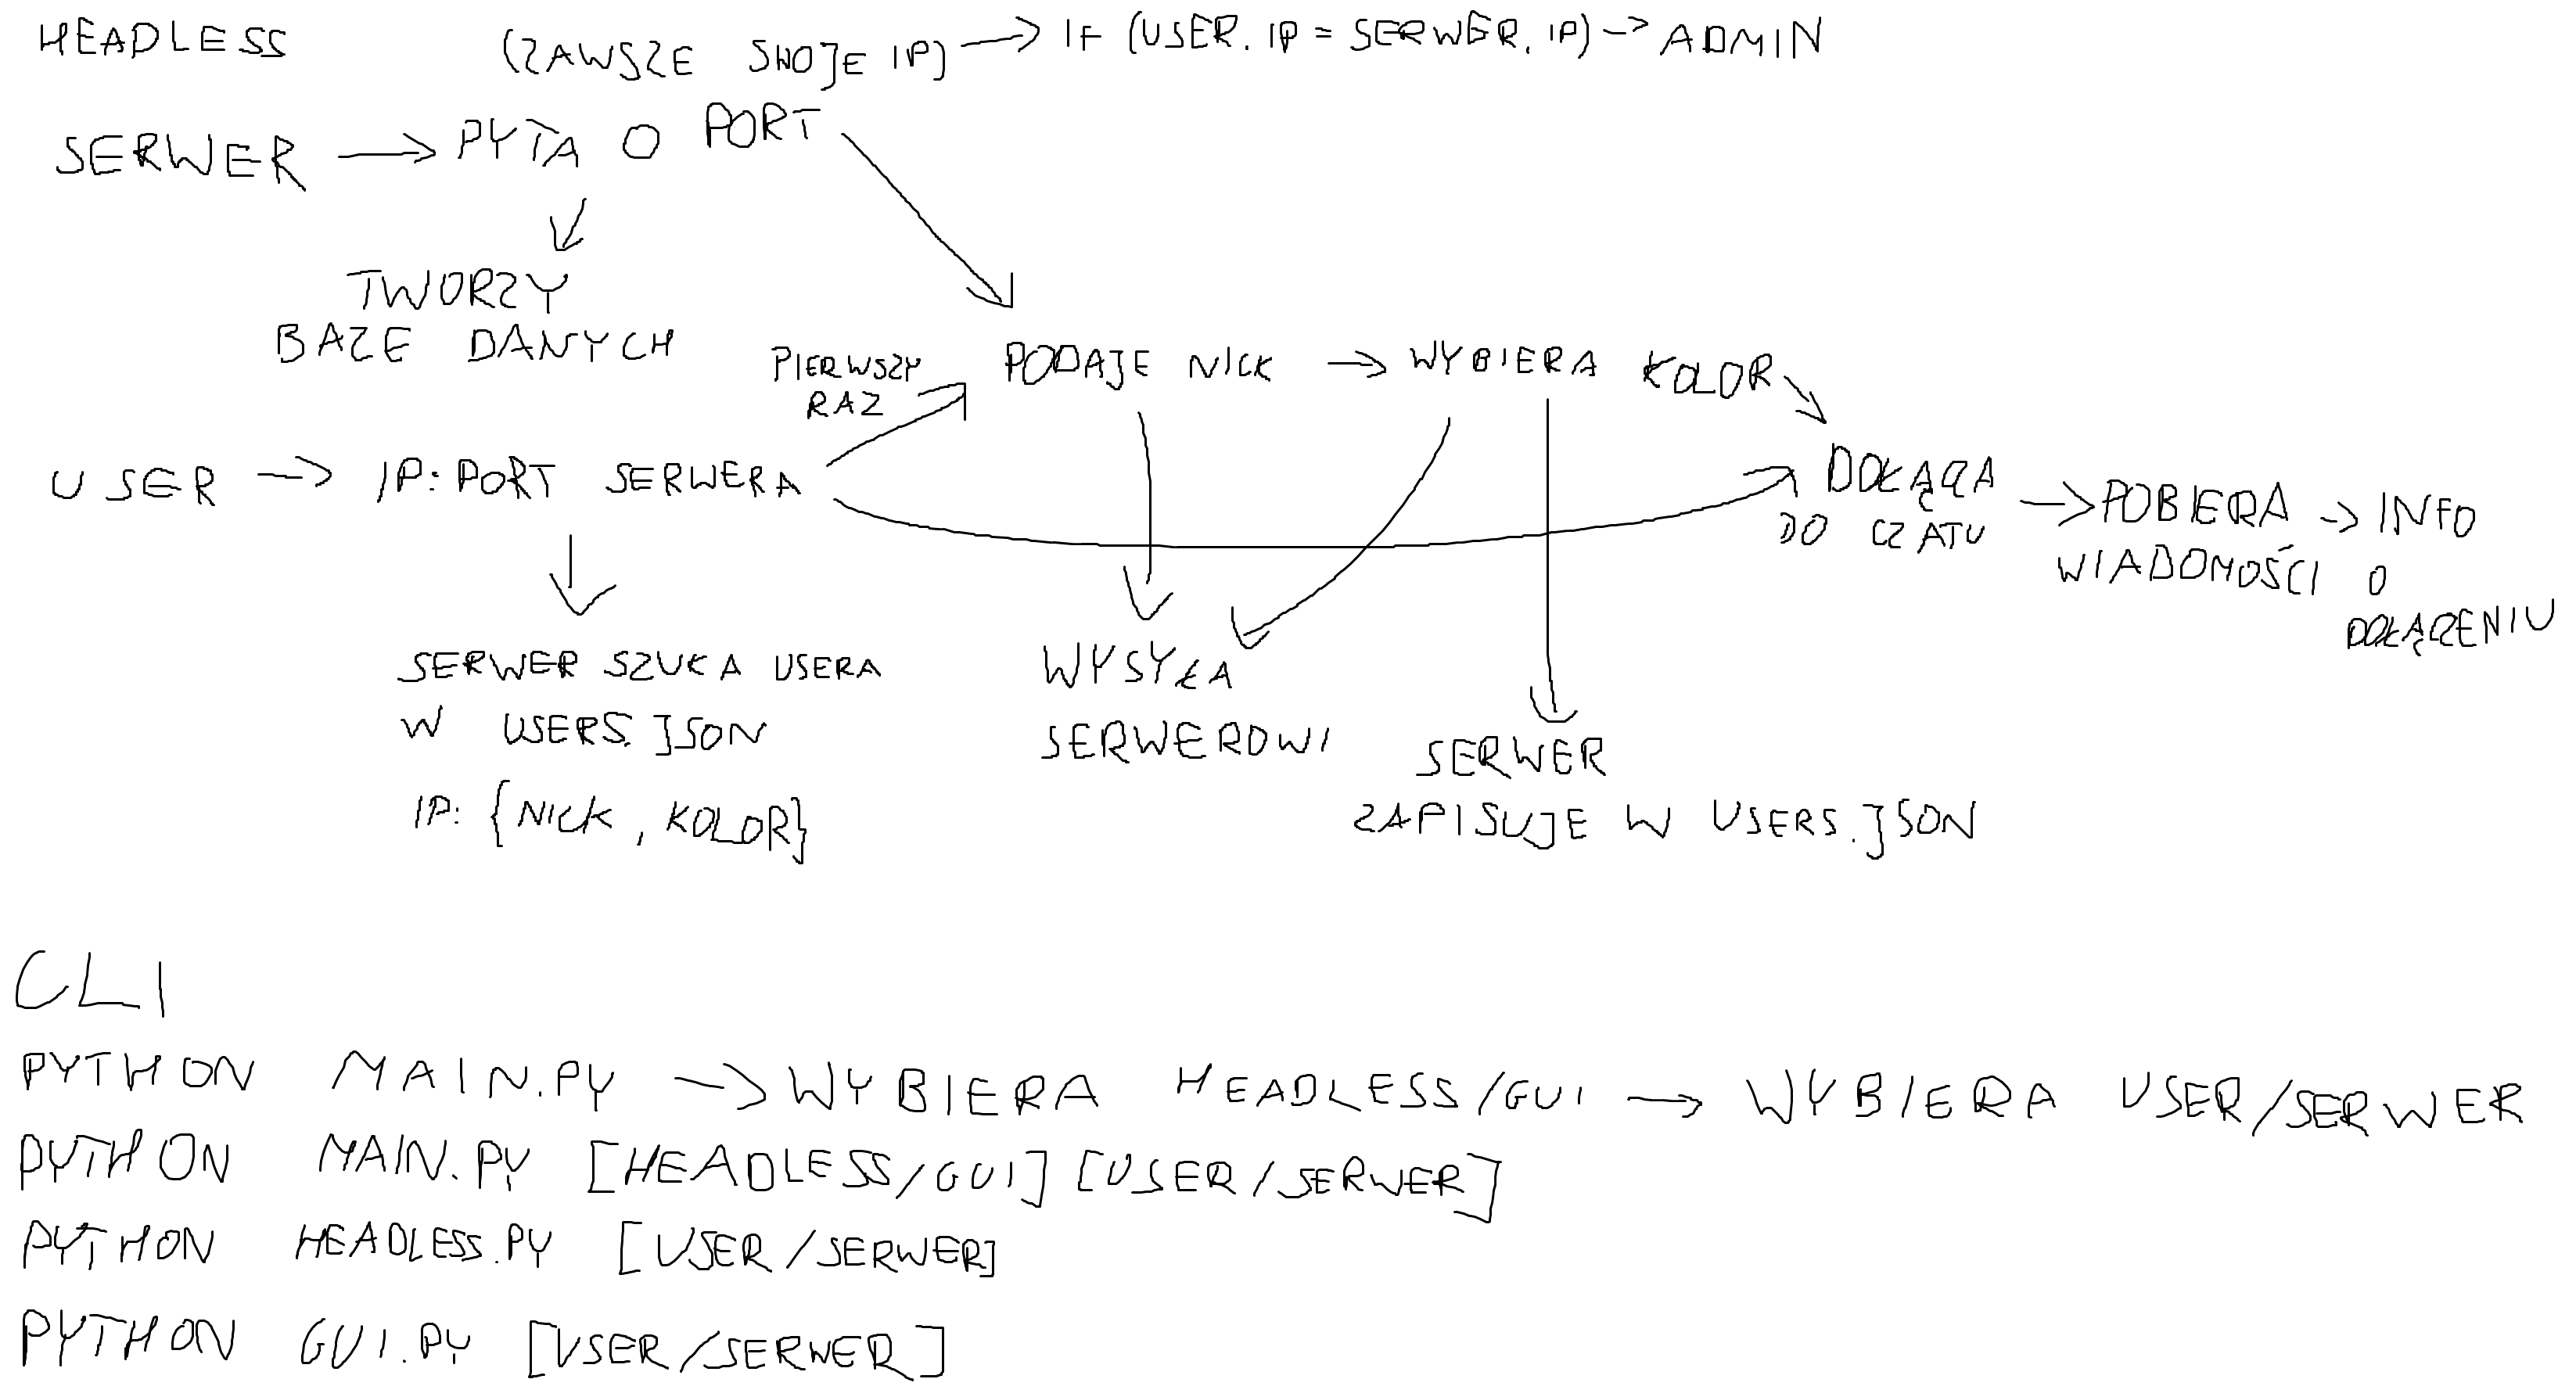 HEADLESS
(ZAWSZE SWOJE IP) → IF (USER.IP = SERWER.IP) → ADMIN
SERWER → PYTA O PORT
TWORZY
BAZE DANYCH
PIERWSZY
RAZ
PODAJE NICK → WYBIERA KOLOR
USER → IP:PORT SERWERA
DOŁĄCZA
DO CZATU
→ POBIERA → INFO
WIADOMOŚCI O
DOŁĄCZENIU
SERWER SZUKA USERA
W USERS.JSON
IP: {NICK, KOLOR}
WYSYŁA
SERWEROWI
SERWER
ZAPISUJE W USERS.JSON
CLI
PYTHON MAIN.PY → WYBIERA HEADLESS/GUI → WYBIERA USER/SERWER
PYTHON MAIN.PY [HEADLESS/GUI] [USER/SERWER]
PYTHON HEADLESS.PY [USER/SERWER]
PYTHON GUI.PY [USER/SERWER]